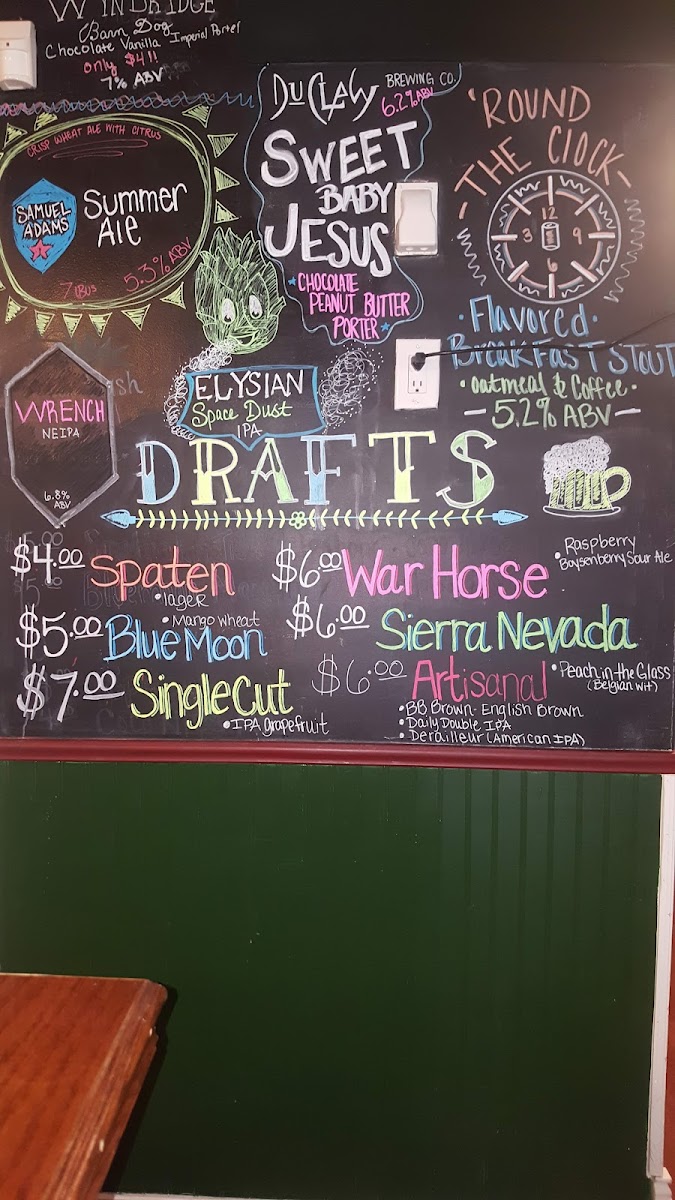 WYNBRIDGE
Barn Dog
Chocolate Vanilla Imperial Porter
only $4!!
7% ABV
CRISP WHEAT ALE WITH CITRUS
SAMUEL
ADAMS
Summer
Ale
7 IBUs
5.3% ABV
DUCLAW BREWING CO.
6.2% ABV
SWEET
BABY
JESUS
CHOCOLATE
PEANUT BUTTER
PORTER
'ROUND
THE CLOCK
12
3 9
6
Flavored
BREAKFAST STOUT
oatmeal & Coffee
5.2% ABV
WRENCH
NEIPA
6.8%
ABV
ELYSIAN
Space Dust
IPA
DRAFTS
$4.00 Spaten
lager
$5.00 Blue Moon
Mango wheat
$7.00 SingleCut
IPA grapefruit
$6.00 War Horse
Raspberry
Boysenberry Sour Ale
$6.00 Sierra Nevada
$6.00 Artisanal
Peach in the Glass
(Belgian Wit)
BB Brown - English Brown
Daily Double IPA
Derailleur (American IPA)